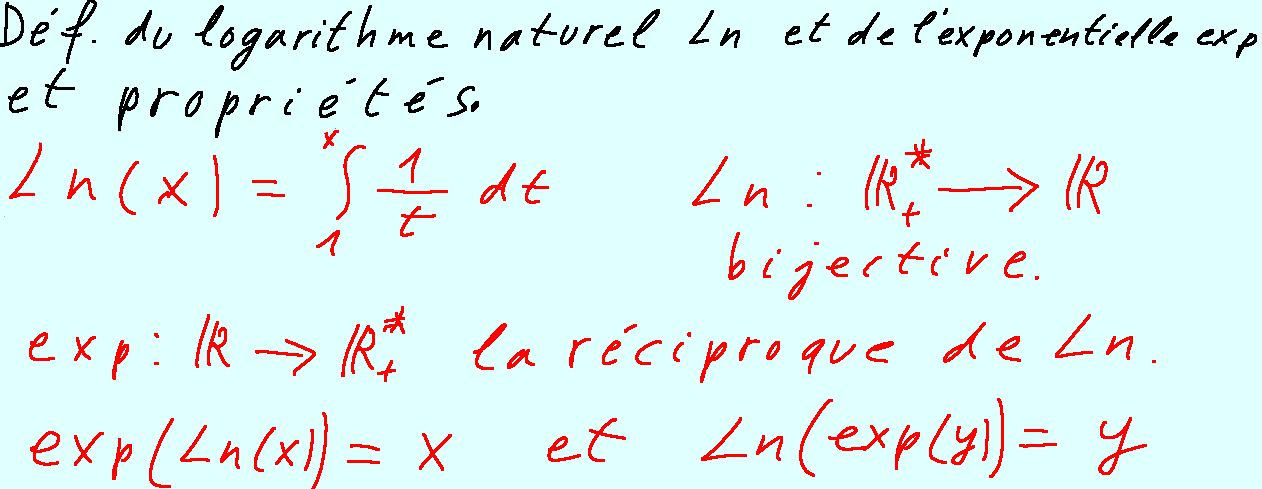 Déf. du logarithme naturel Ln et de l'exponentielle exp
et propriétés.
Ln(x) = ∫₁ˣ 1/t dt Ln : ℝ₊* → ℝ
bijective.
exp : ℝ → ℝ₊* la réciproque de Ln.
exp(Ln(x)) = x et Ln(exp(y)) = y